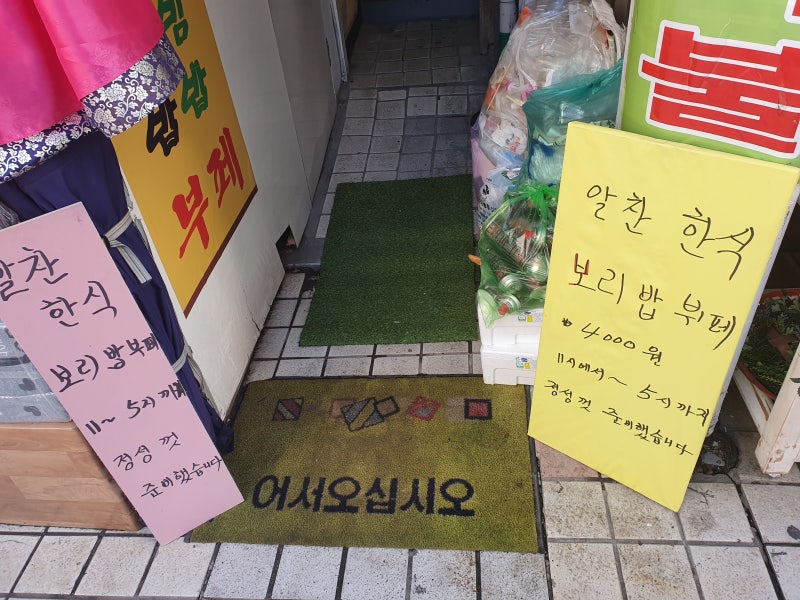 밥밥
부페
불
알찬
한식
보리밥부페
11~ 5시까지
정성껏
준비했습니다
어서오십시오
알찬 한식
보리밥 뷔페
4000원
11시에서~ 5시까지
정성껏 준비했습니다